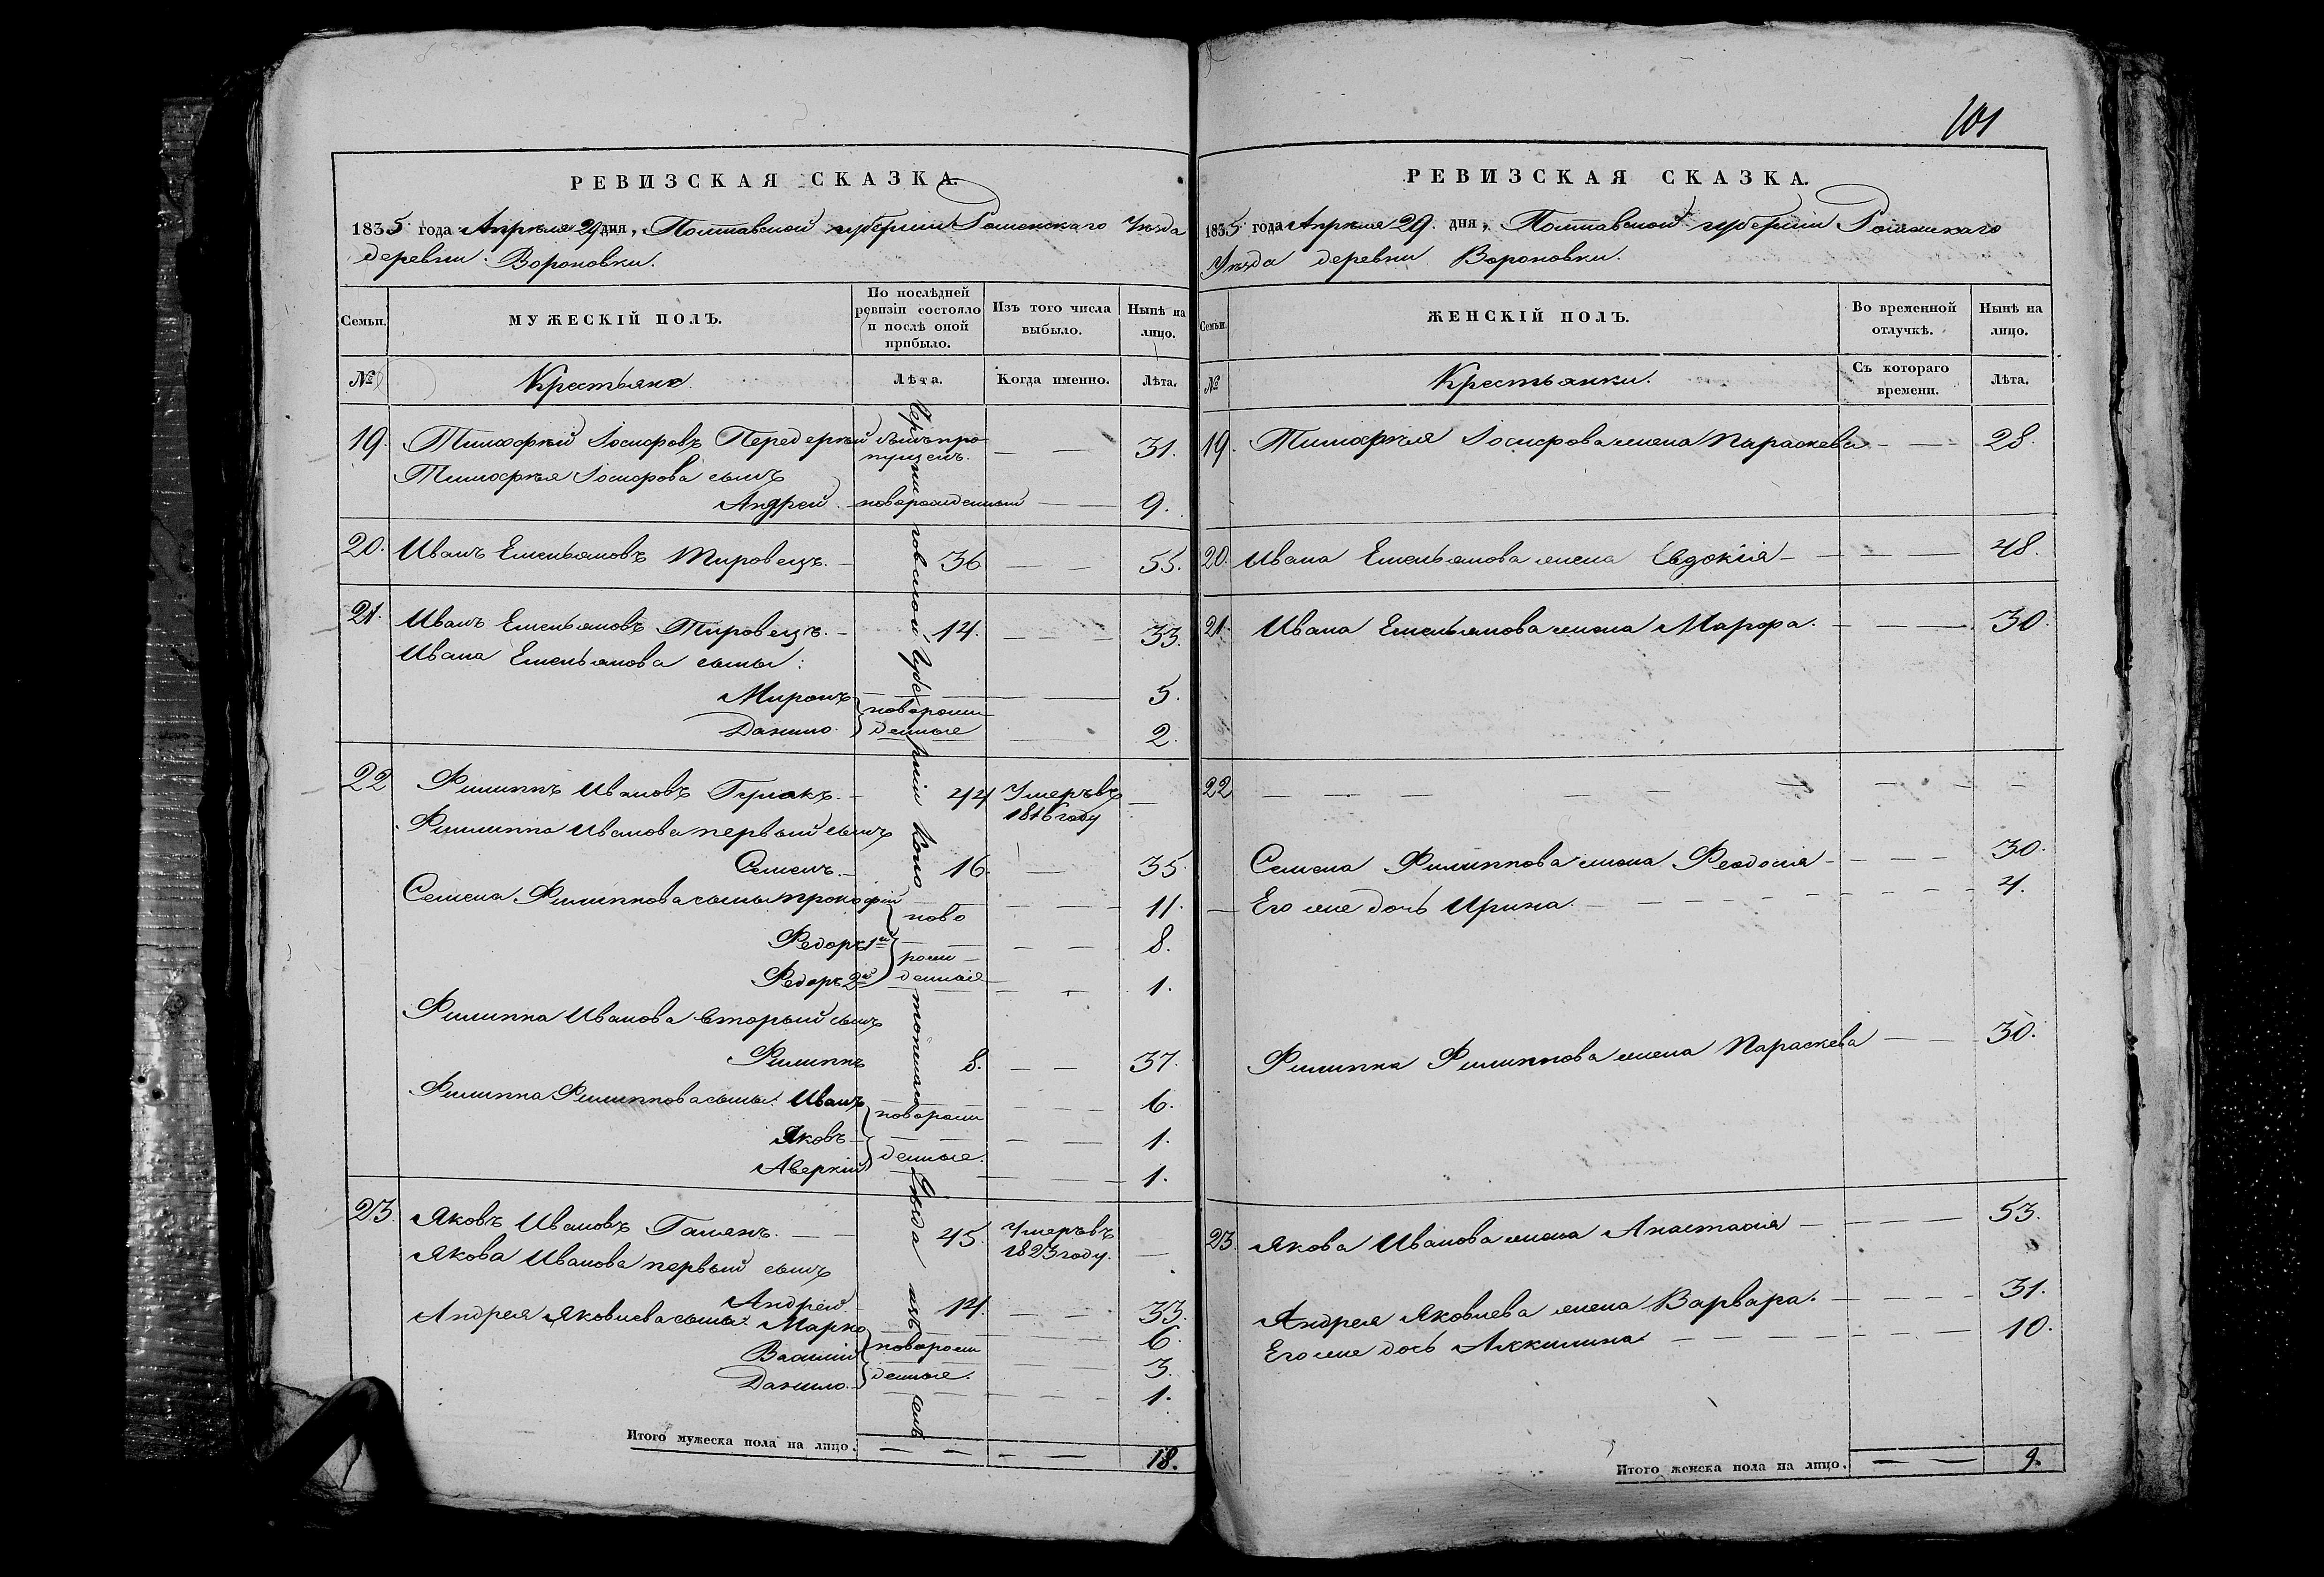 101
РЕВИЗСКАЯ СКАЗКА.
1835 года Апреля 29 дня, Полтавской губернии Роменскаго Уезда
деревни Вороновки.
Семьи.
МУЖЕСКІЙ ПОЛЪ.
По послѣдней ревизіи состояло и послѣ оной прибыло.
Изъ того числа выбыло.
Нынѣ на лицо.
№
Крестьяне.
Лѣта.
Когда именно.
Лѣта.
19. Тимофей Іосифовъ былъ про 31.
пущенъ.
Тимофея Іосифова сынъ
Андрей новорожденный 9.
20. Иванъ Емельяновъ Тировецъ. 36 55.
21. Иванъ Емельяновъ Тировецъ. 14. 33.
Ивана Емельянова сыны:
Миронъ 5.
новорож
Данило. денные 2.
22 Филиппъ Ивановъ 44 Умеръ въ
1816 году
Филиппа Иванова первый сынъ
Семенъ. 16. 35.
Семена Филиппова сыны Прокофій 11.
ново
Федоръ 1й 8.
рож
Федоръ 2й денные 1.
Филиппа Иванова вторый сынъ
Филиппъ 8. 37.
Филиппа Филиппова сыны: Иванъ 6.
новорож
Яковъ 1.
денные.
Аверкій 1.
23. Яковъ Ивановъ 45. Умеръ въ
1823 году.
Якова Иванова первый сынъ
Андрей 14. 33.
Андрея Яковлева сыны: Марко 6.
Василий новорож 3.
Данило. денные. 1.
Итого мужеска пола на лицо. 18.
Черниговской Губерніи Уезда
РЕВИЗСКАЯ СКАЗКА.
1835 года Апреля 29. дня, Полтавской губерніи Роменскаго
Уезда деревни Вороновки.
Семьи.
ЖЕНСКІЙ ПОЛЪ.
Во временной отлучкѣ.
Нынѣ на лицо.
№
Крестьянки.
Съ котораго времени.
Лѣта.
19. Тимофея Іосифова жена Параскева 28.
20. Ивана Емельянова жена Евдокія 48.
21. Ивана Емельянова жена Марфа. 30.
22
Семена Филиппова жена Феодосія 30.
Его же дочь Ирина. 4.
Филиппа Филиппова жена Параскева 30.
23. Якова Иванова жена Анастасія 53.
Андрея Яковлева жена Варвара. 31.
Его же дочь Аккилина 10.
Итого женска пола на лицо. 9.